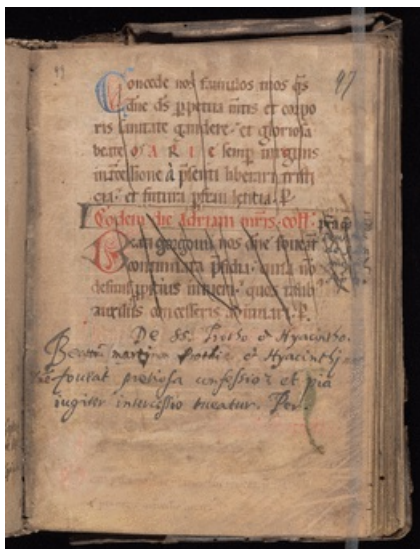 97
Concede nos famulos tuos q̄s
dne ds ꝑpetua m̄tis et corpo
ris sanitate gaudere· et gloriosa
beate MARIE semꝑ uirginis
intercessione a p̄senti liberari tristi
cia· et futura ꝑfrui letitia. P.
Eodem die Adriani m̄ris. coll.
Beati gorgonii nos dne foueat
continuata p̄sidia· quia nō
desinis ꝓpitius intueri· quos talib
auxiliis concesseris adiuuari. P.
De SS. Protho & Hyacintho.
Beatorum martirum Prothi & Hyacinthi nos
foueat pretiosa confessio: et pia
iugiter intercessio tueatur. Per.